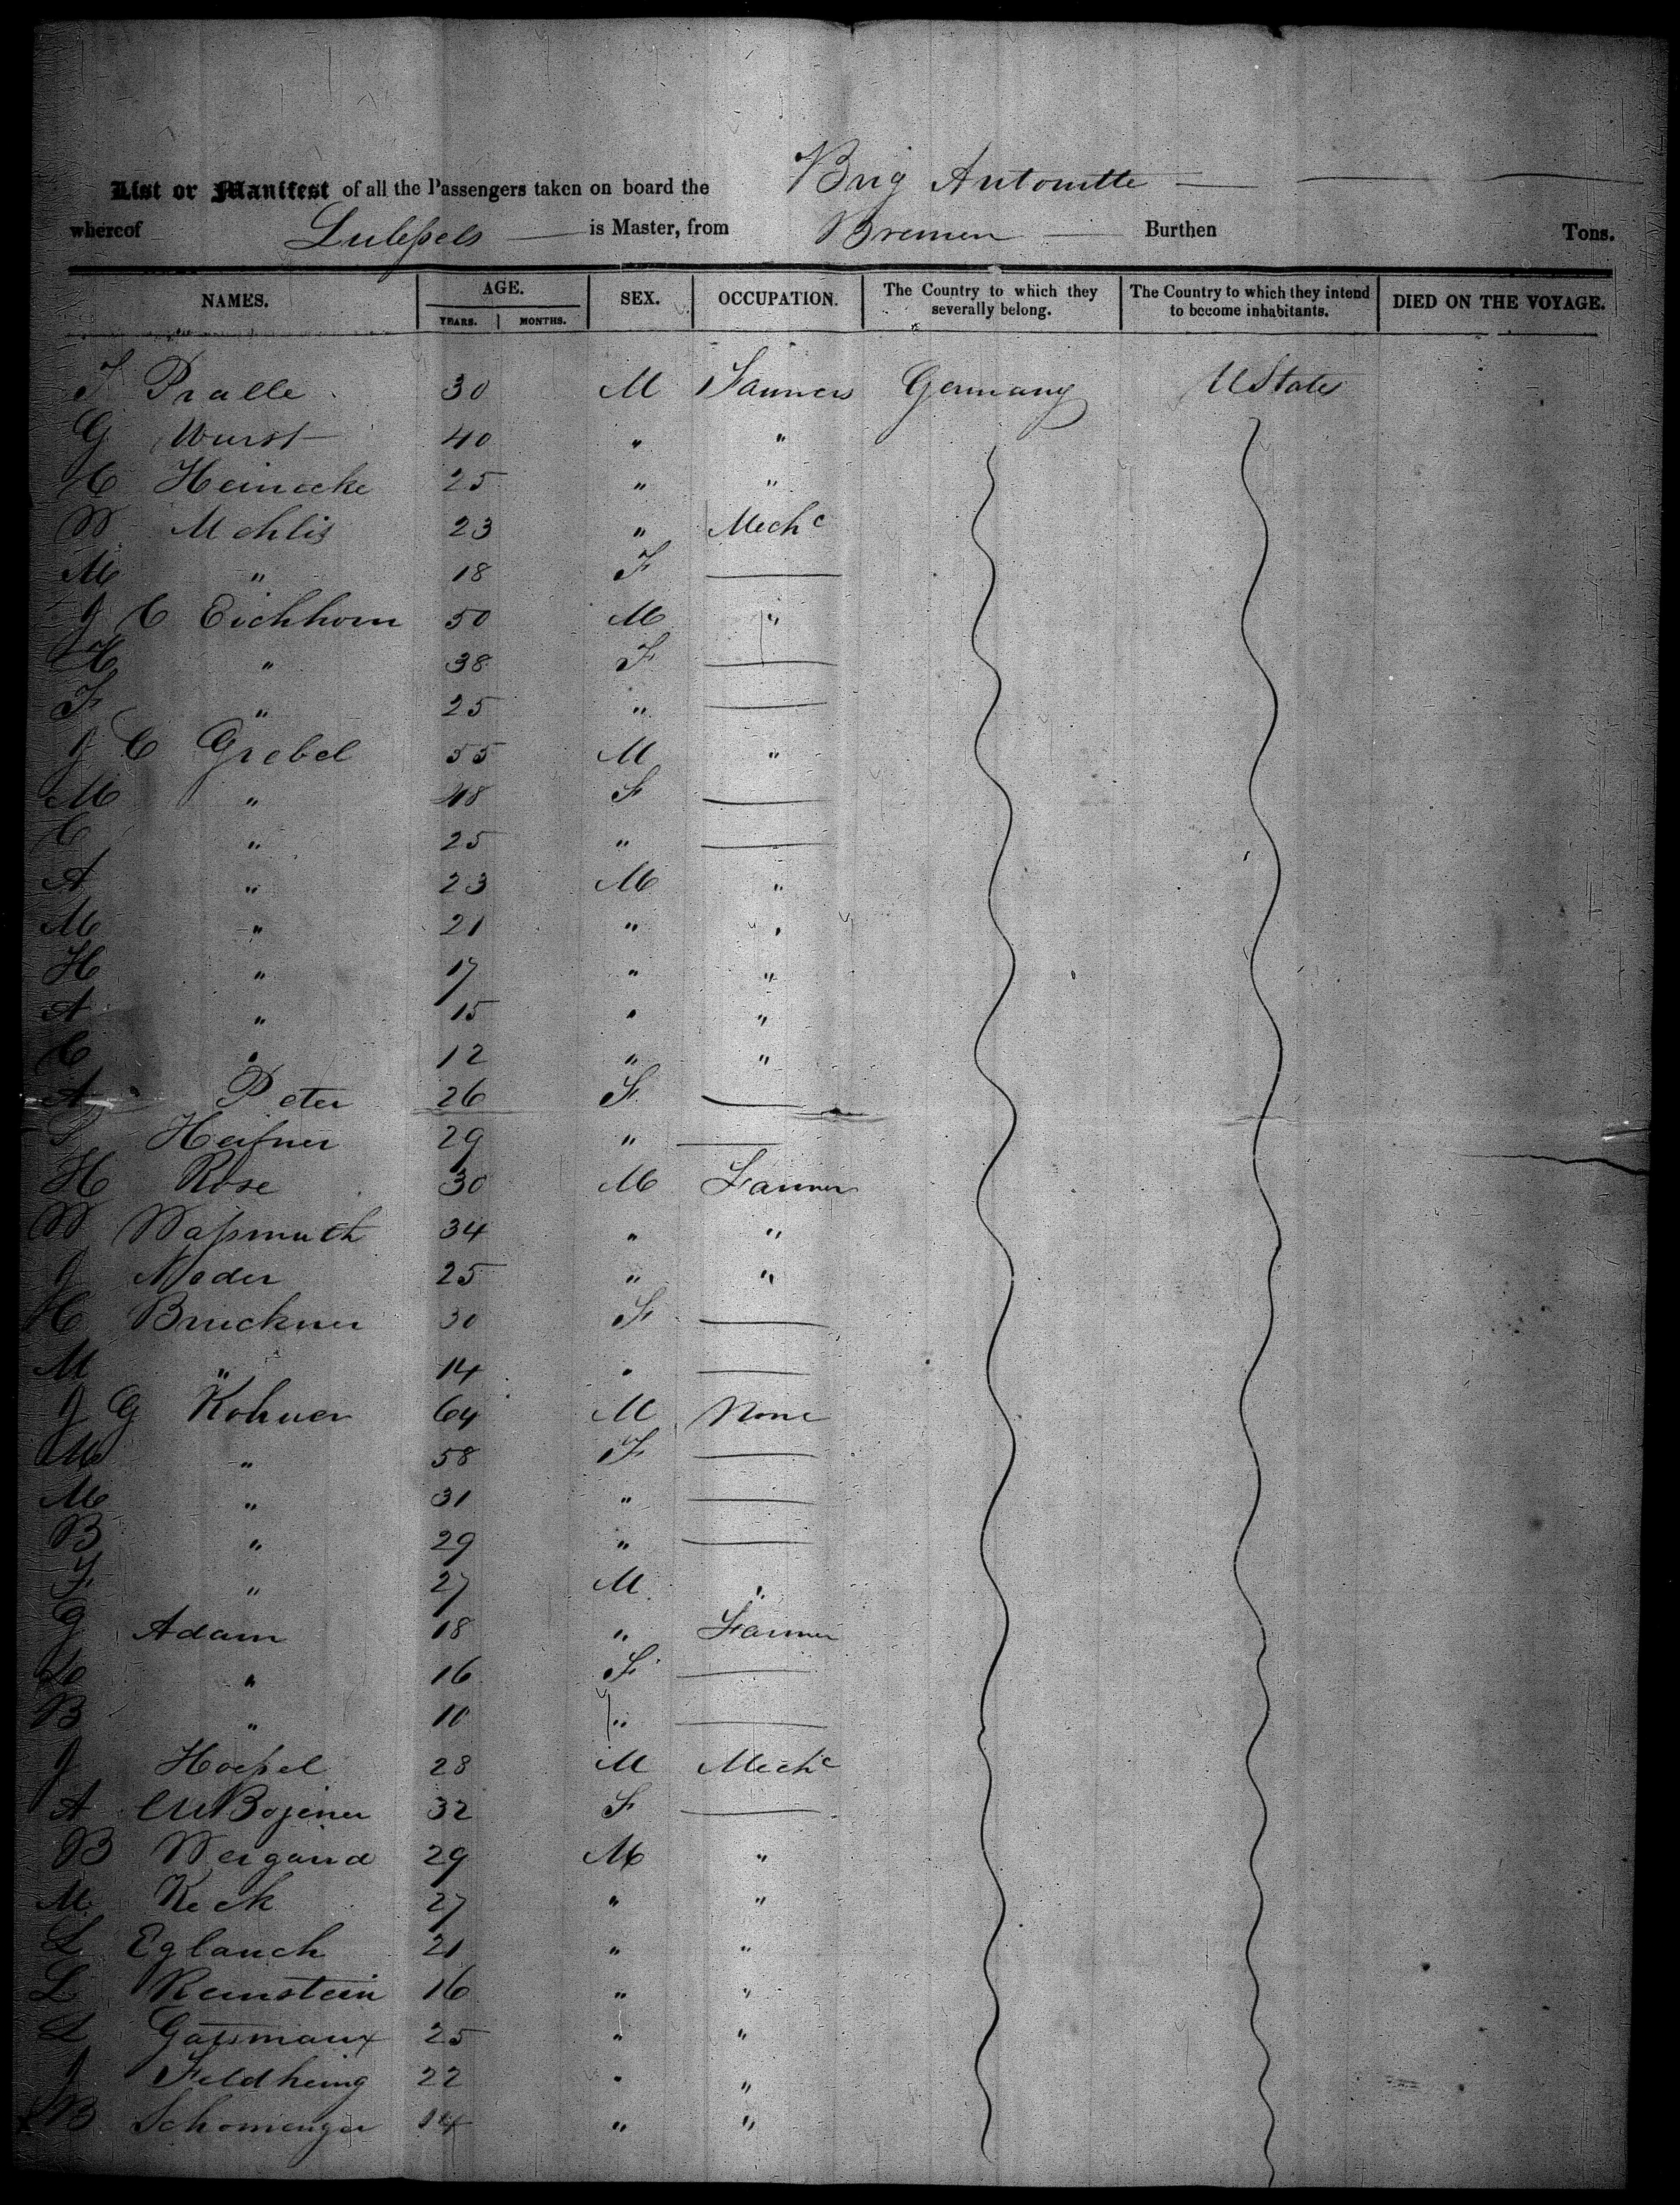 List or Manifest of all the Passengers taken on board the Brig Antoinette
whereof is Master, from Bremen Burthen Tons.
NAMES. AGE. SEX. OCCUPATION. The Country to which they severally belong. The Country to which they intend to become inhabitants. DIED ON THE VOYAGE.
YEARS. MONTHS.
F Pralle 30 M Farmers Germany U States
G Wurst 40 " "
H Heinecke 25 " "
W Mehlis 23 " Mechc
M " 18 F
J C Eichhorn 50 M "
" 38 F
F " 25 "
J C Grebel 55 M "
M " 48 F
C " 25 "
A " 23 M "
M " 21 " "
H " 17 " "
A " 15 " "
C " 12 " "
A Peter 26 F
Heifner 29 "
H Rose 30 M Farmer
W Waßmuth 34 " "
J Noder 25 " "
H Bruckner 30 F
M " 14 "
J G Kohner 64 M None
M " 58 F
M " 31 "
B " 29 "
F " 27 M "
G Adam 18 " Farmer
" 16 F
B " 10 "
J Hoepel 28 M Mechc
A 32 F
B Weigand 29 M "
M Keck 27 " "
L Eglauch 21 " "
L Reinstein 16 " "
L 25 " "
J Feldheing 22 " "
B 14 " "